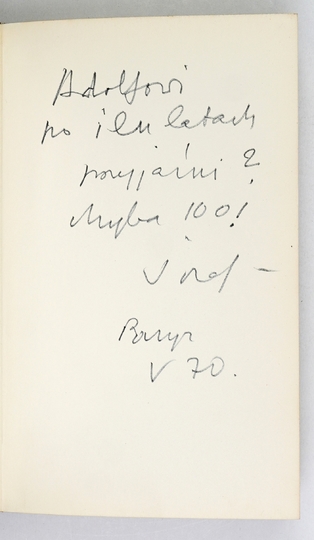 Adolfowi
po ilu latach
przyjaźni?
chyba 100!
Józef –
Paryż
V 70.